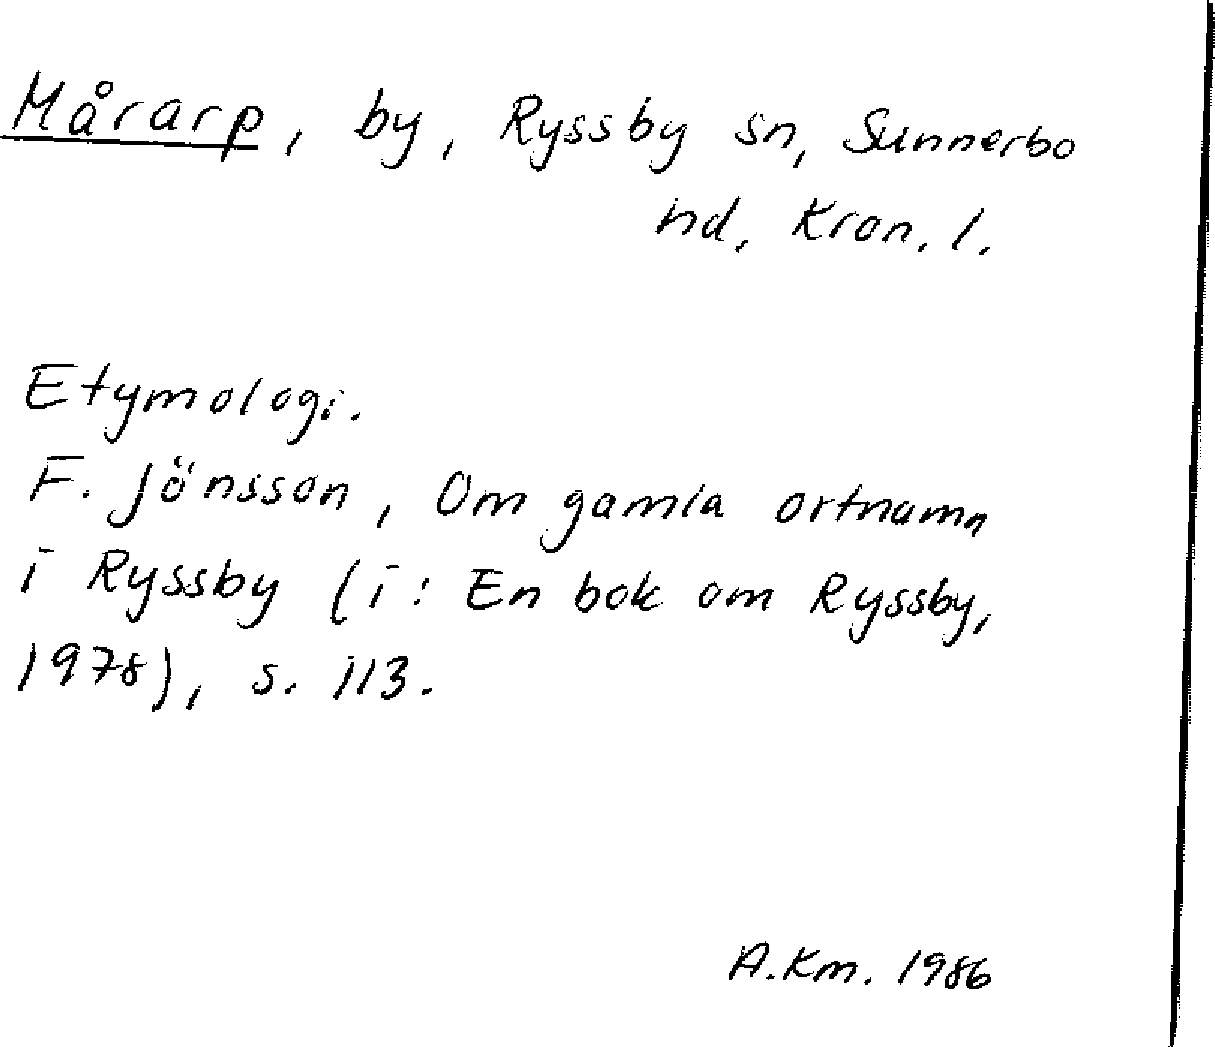 Mårarp, by, Ryssby sn, Sunnerbo
hd, Kron. l.
Etymologi.
F. Jönsson, Om gamla ortnamn
i Ryssby (i: En bok om Ryssby,
1978), s. 113.
A.Km. 1986